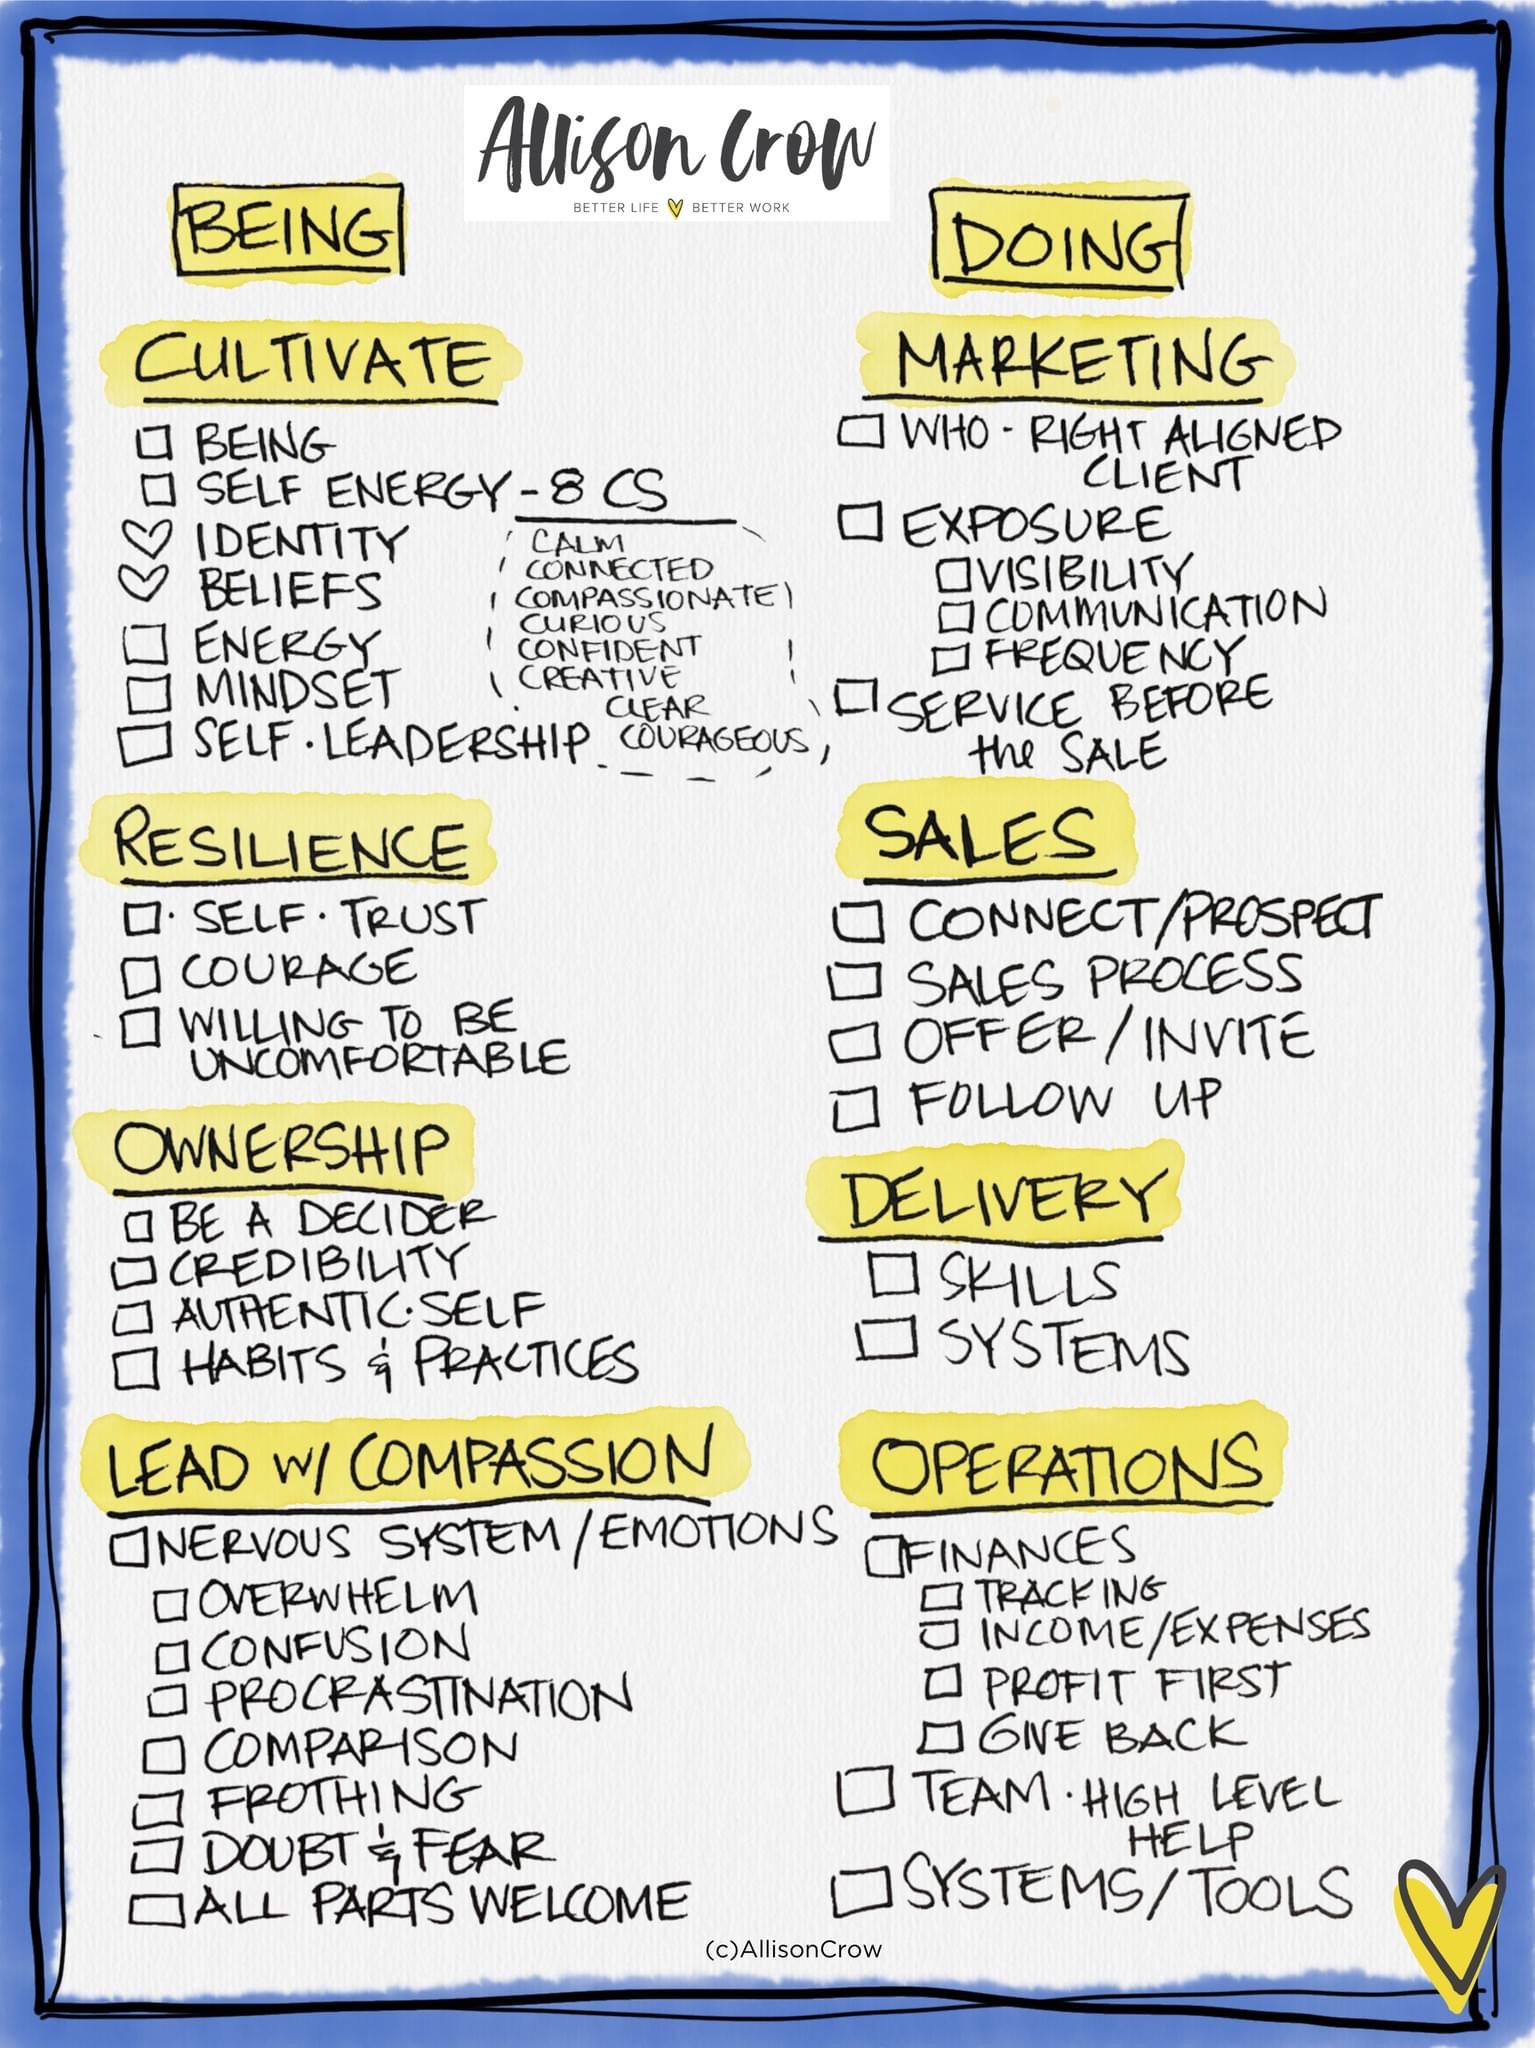 Allison Crow
BETTER LIFE BETTER WORK
BEING
CULTIVATE
BEING
SELF ENERGY - 8 CS
CALM
CONNECTED
COMPASSIONATE
CURIOUS
CONFIDENT
CREATIVE
CLEAR
COURAGEOUS
IDENTITY
BELIEFS
ENERGY
MINDSET
SELF·LEADERSHIP
RESILIENCE
· SELF·TRUST
COURAGE
WILLING TO BE
UNCOMFORTABLE
OWNERSHIP
BE A DECIDER
CREDIBILITY
AUTHENTIC·SELF
HABITS & PRACTICES
LEAD W/ COMPASSION
NERVOUS SYSTEM/EMOTIONS
OVERWHELM
CONFUSION
PROCRASTINATION
COMPARISON
FROTHING
DOUBT & FEAR
ALL PARTS WELCOME
DOING
MARKETING
WHO - RIGHT ALIGNED
CLIENT
EXPOSURE
VISIBILITY
COMMUNICATION
FREQUENCY
SERVICE BEFORE
the SALE
SALES
CONNECT/PROSPECT
SALES PROCESS
OFFER/INVITE
FOLLOW UP
DELIVERY
SKILLS
SYSTEMS
OPERATIONS
FINANCES
TRACKING
INCOME/EXPENSES
PROFIT FIRST
GIVE BACK
TEAM · HIGH LEVEL
HELP
SYSTEMS/TOOLS
(c)AllisonCrow